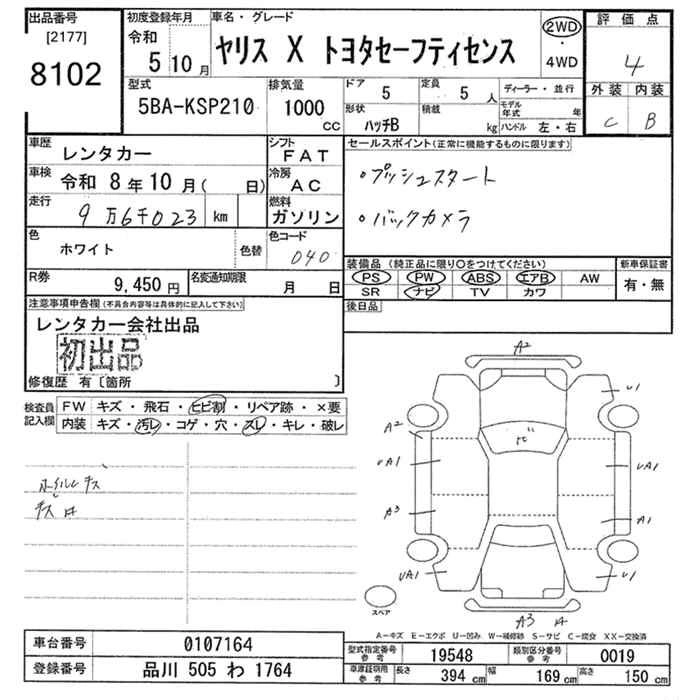 出品番号
[2177]
8102
初度登録年月
令和
5 10 月
車名・グレード
ヤリス X トヨタセーフティセンス
2WD
・
4WD
評価点
4
外装 内装
C B
型式
5BA-KSP210
排気量
1000
CC
ドア
5
定員
5 人
形状
ハッチB
積載
kg
ディーラー・並行
モデル年式 年
ハンドル 左・右
車歴
レンタカー
シフト
FAT
車検 令和 8年 10月( 日)
冷房
AC
走行
9万6千023 km
燃料
ガソリン
色
ホワイト
色替
色コード
040
R券
9,450 円
名変通知期限
月 日
セールスポイント(正常に機能するものに限ります)
・プッシュスタート
・バックカメラ
装備品(純正品に限り○をつけてください)
PS PW ABS エアB AW
SR ナビ TV カワ
新車保証書
有・無
後日品
注意事項申告欄(不具合内容等は具体的に記入して下さい)
レンタカー会社出品
初出品
修復歴 有〔箇所 〕
検査員
記入欄
FW キズ・飛石・ヒビ割・リペア跡・×要
内装 キズ・汚レ・コゲ・穴・スレ・キレ・破レ
ホイルキズ
A2
U1
A2
UA1
UA1
A3
A1
UA1
U1
スペア
A3
A-キズ E-エクボ U-凹み W-補修跡 S-サビ C-腐食 XX-交換済
車台番号
0107164
登録番号
品川 505 わ 1764
型式指定番号
19548
類別区分番号
0019
車庫証明用参考
長さ 394 cm
幅 169 cm
高さ 150 cm